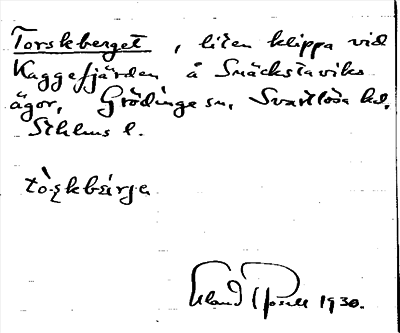 Torskberget, liten klippa vid
Kaggefjärden å Snäckstaviks
ägor, Grödinge sn, Svartlösa hd,
Sthlms l.
1930.